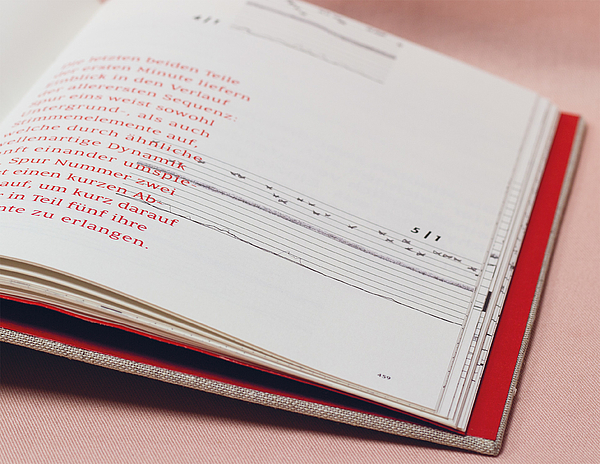 letzten beiden Teile
der ersten Minute liefern
Einblick in den Verlauf
der allerersten Sequenz:
Spur eins weist sowohl
Untergrund-, als auch
Stimmenelemente auf,
welche durch ähnliche
wellenartige Dynamik
einander umspie
Spur Nummer zwei
einen kurzen Ab-
auf, um kurz darauf
in Teil fünf ihre
zu erlangen.
5|1
459